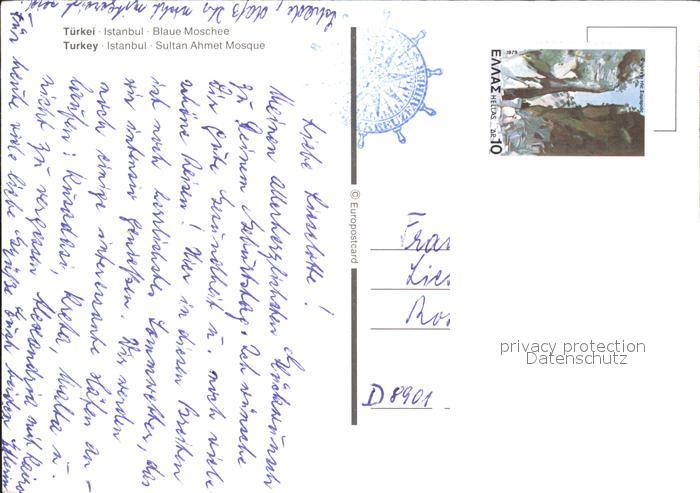 Türkei · Istanbul · Blaue Moschee
Turkey · Istanbul · Sultan Ahmet Mosque
Liebe Lieselotte!
Meinen allerherzlichsten Glückwunsch
zu Deinem Geburtstag. Ich wünsche
Dir gute Gesundheit u. noch viele
schöne Reisen! Hier in diesen Breiten
ist noch herrliches Sommerwetter, das
wir intensiv genießen. Wir werden
noch einige interessante Häfen an-
laufen: Kusadasi, Kreta, Malta u.
nicht zu vergessen Alexandria mit Kairo
Für heute viele liebe Grüße Euch beiden
schade, daß Du nicht
© Europostcard
KREUZFAHRTEN
1979
ΕΛΛΑΣ
HELLAS
ΔΡ. 10
Frau
Lies
Ros
D 8901
privacy protection
Datenschutz